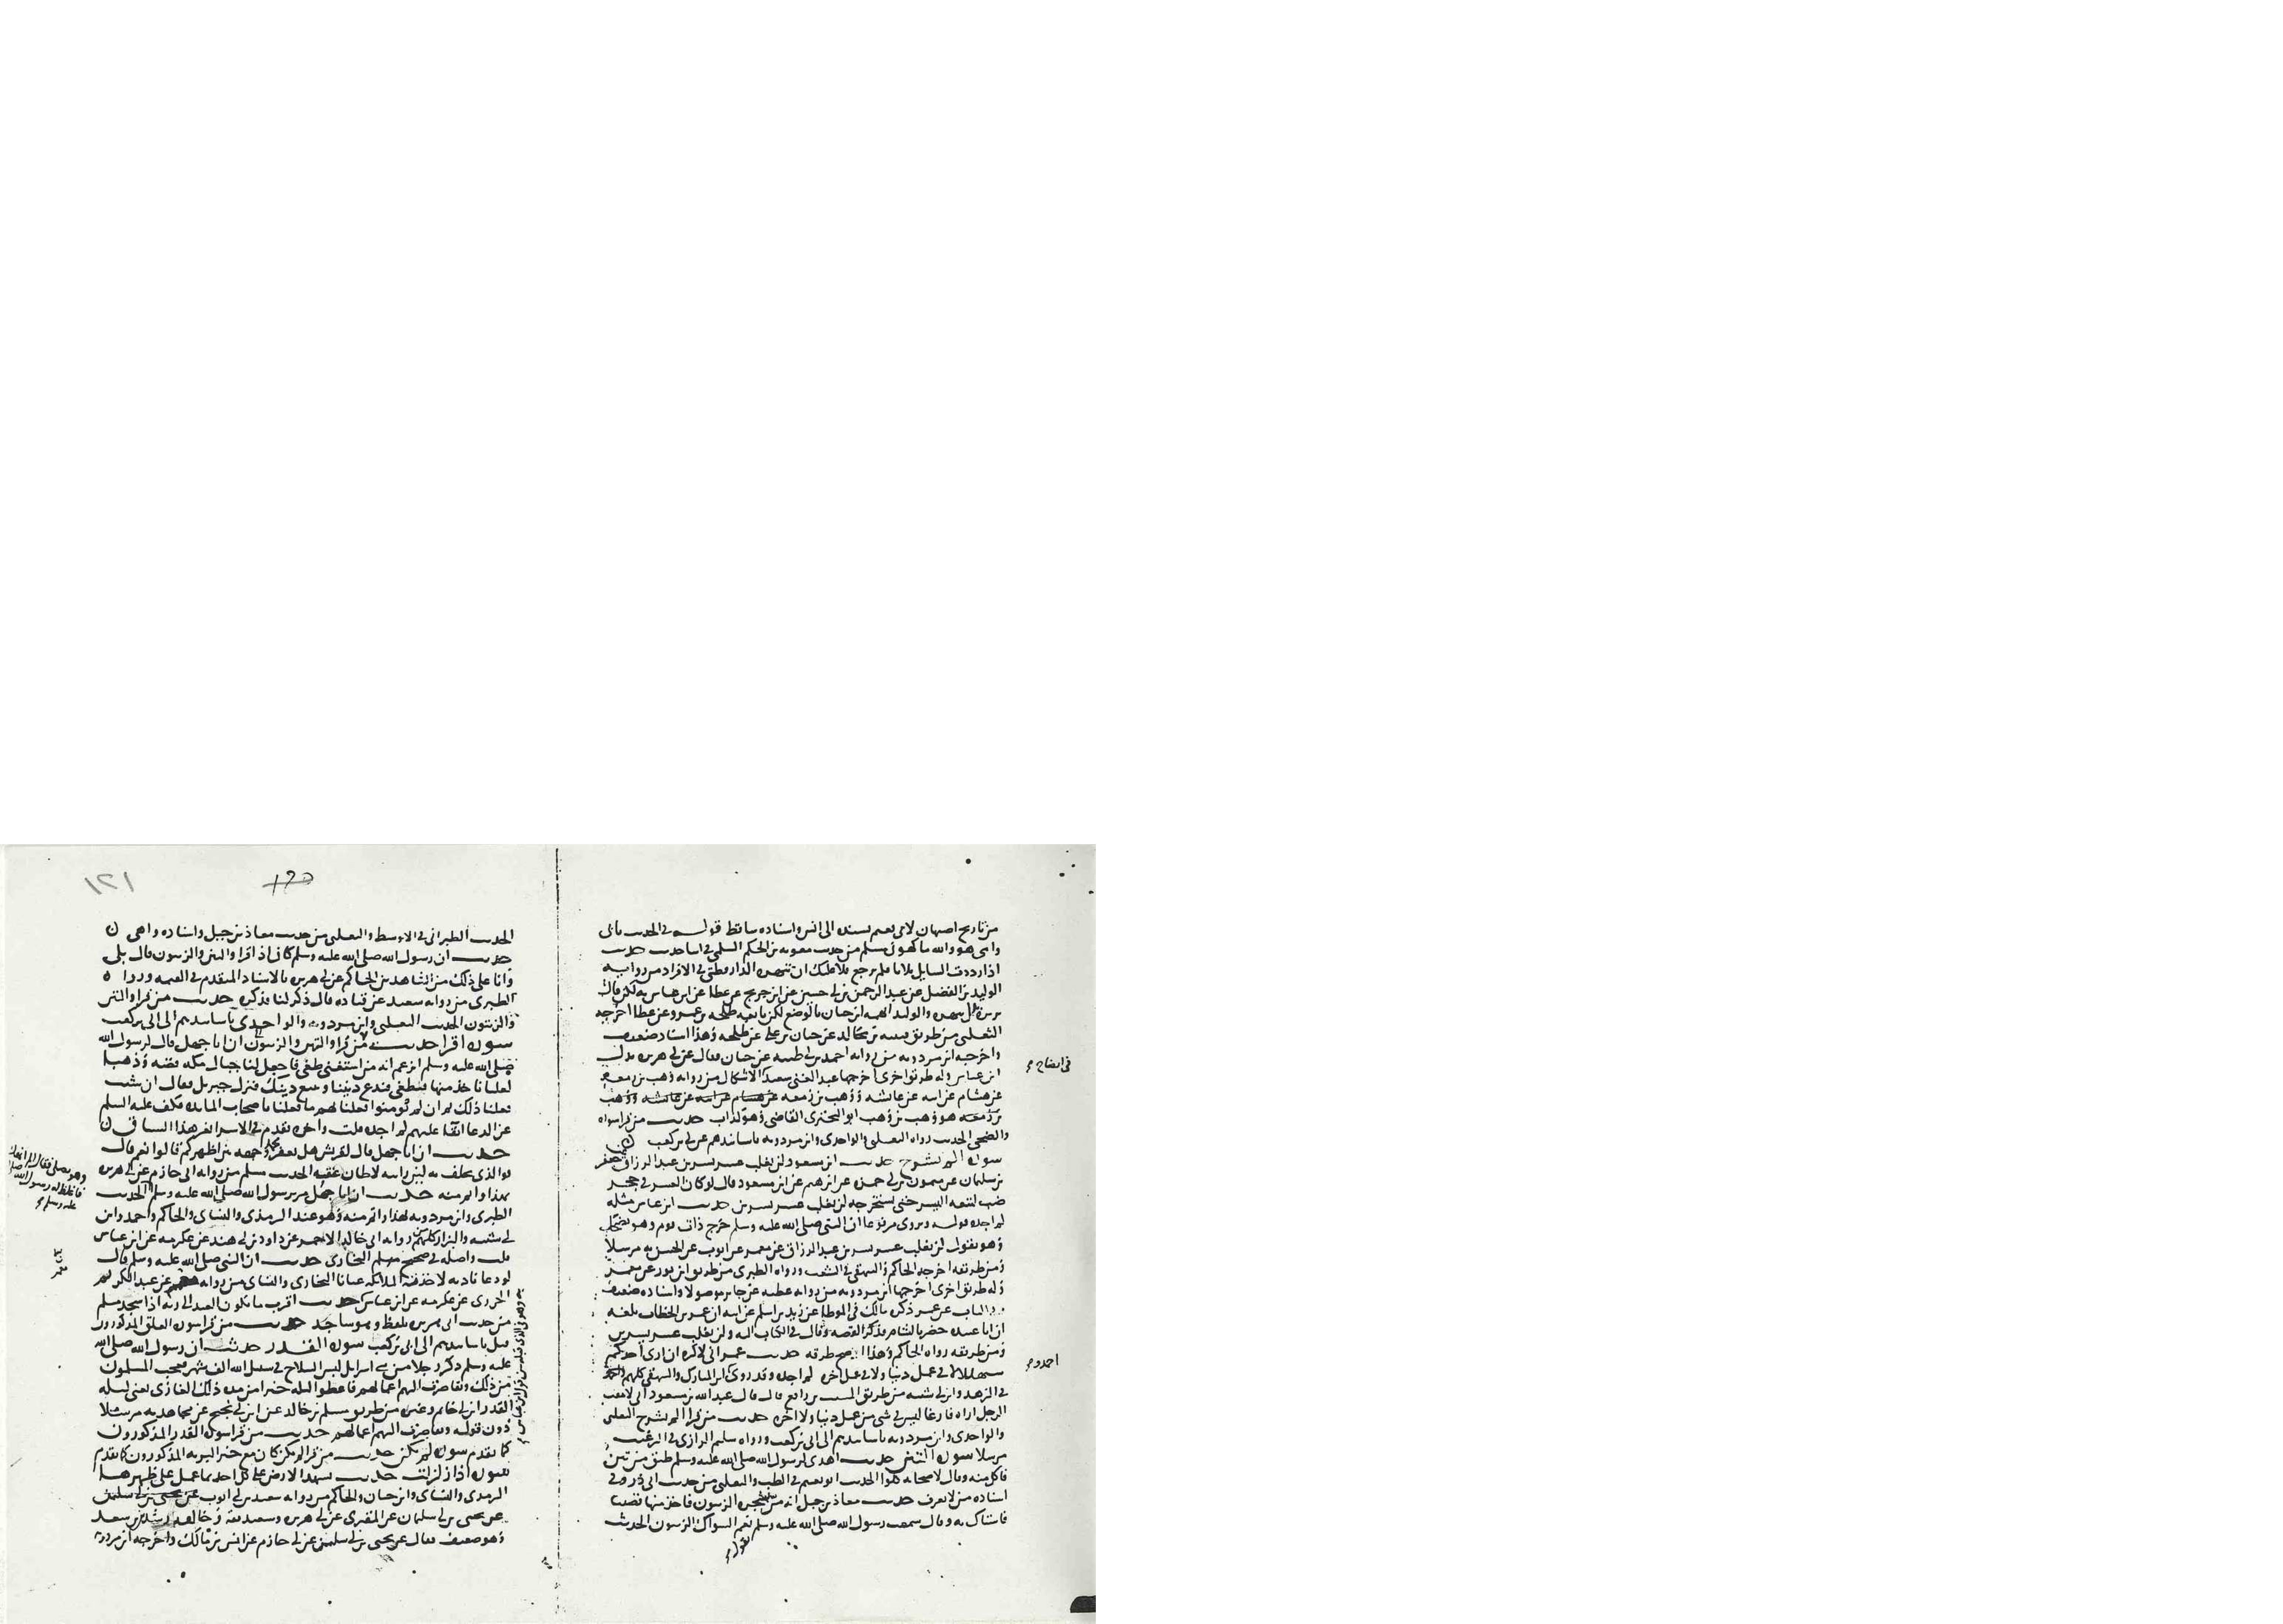 من تاريخ اصبهان لابي نعيم بسنده الى انس واسناده ساقط قوله في الحديث بابي
وامي هو والله ما كهرني مسلم من حديث معوية بن الحكم السلمي في اثنا حديث حديث
اذا رددت السايل ثلاثا فلم يرجع فلا عليك ان تنهره الدارقطني في الافراد من رواية
الوليد بن الفضل عن عبد الرحمن بن حسين عن ابن جريج عن عطا عن ابن عباس به لكن قال
والوليد اتهمه ابن حبان بالوضع لكن تابعه طلحة بن عمرو عن عطا اخرجه
الثعلبي من طريق عن حبان بن علي عن طلحة وهذا اسناد ضعيف
واخرجه ابن مردويه من رواية احمد بن ابي طيبة عن حبان فقال عن ابي هريرة بدل
ابن عباس وله طريق اخرى اخرجها عبد الغني بن سعيد في ايضاح الاشكال من رواية وهب بن زمعة
عن هشام عن ابيه عن عايشة ووهب بن زمعة عن هشام عن ابيه عن عايشة ووهب
بن زمعة هو وهب بن وهب ابو البختري القاضي وهو كذاب حديث من قرا سورة
والضحى الحديث رواه الثعلبي والواحدي وابن مردويه باسانيدهم عن ابي بن كعب
سورة الم نشرح حديث ابن مسعود لن يغلب عسر يسرين عبد الرزاق عن جعفر
بن سلمان عن ميمون بن ابي حمزة عن ابراهيم عن ابن مسعود قال لو كان العسر في جحر
ضب لتبعه اليسر حتى يستخرجه لن يغلب عسر يسرين حديث ابن عباس مثله
لم اجده قوله وروى مرفوعا ان النبي صلى الله عليه وسلم خرج ذات يوم وهو يضحك
وهو يقول لن يغلب عسر يسرين عبد الرزاق عن معمر عن ايوب عن الحسن به مرسلا
ومن طريقه اخرجه الحاكم والبيهقي في الشعب ورواه الطبري من طريق ابن ثور عن معمر
وله طريق اخرى اخرجها ابن مردويه من رواية عطية عن جابر موصولا واسناده ضعيف
وفي الباب عن عمر ذكره مالك في الموطا عن زيد بن اسلم عن ابيه ان عمر بن الخطاب بلغه
ان ابا عبيدة حضر بالشام فذكر القصة وقال في الكتاب اليه ولن يغلب عسر يسرين
ومن طريقه رواه الحاكم وهذا اصح طرقه حديث عمر اني لاكره ان ارى احدكم
سبهللا لا في عمل دنيا ولا في عمل اخرة لم اجده وقد روى ابن المبارك والبيهقي كلهم
احمد و
في الزهد وابن ابي شيبة من طريق المسيب بن رافع قال قال عبد الله بن مسعود اني لامقت
الرجل اراه فارغا ليس في شي من عمل دنيا ولا اخرة حديث من قرا الم نشرح الثعلبي
والواحدي وابن مردويه باسانيدهم الى ابي بن كعب ورواه سليم الرازي في الترغيب
مرسلا سورة التين حديث اهدي لرسول الله صلى الله عليه وسلم طبق من تين
فاكل منه وقال لاصحابه كلوا الحديث ابو نعيم في الطب والثعلبي من حديث ابي ذر وفي
اسناده من لا يعرف حديث معاذ بن جبل انه مر بشجرة الزيتون فاخذ منها قضيبا
فاستاك به وقال سمعت رسول الله صلى الله عليه وسلم يقول نعم السواك الزيتون الحديث
١٢١
الحديث الطبراني في الاوسط والثعلبي من حديث معاذ بن جبل واسناده واهي
حديث ان رسول الله صلى الله عليه وسلم كان اذا قرا والتين والزيتون قال بلى
وانا على ذلك من الشاهدين الحاكم عن ابي هريرة بالاسناد المتقدم في القيمة وروا
الطبري من رواية سعيد عن قتادة قال ذكر لنا فذكره حديث من قرا والتين
والزيتون الحديث الثعلبي وابن مردويه والواحدي باسانيدهم الى ابي بن كعب
سورة اقرا حديث ان ابا جهل قال لرسول الله
صلى الله عليه وسلم اتزعم انه من استغنى طغى فاجعل لنا جبال مكة فضة وذهبا
لعلنا ناخذ منها فنطغى فندع ديننا ونتبع دينك فنزل جبريل فقال ان شيت
فعلنا ذلك ثم ان لم يومنوا فعلنا بهم ما فعلنا باصحاب المايدة فكف عليه السلم
عن الدعا ابقا عليهم لم اجده قلت واخره تقدم في الاسرا بغير هذا السياق
حديث ان ابا جهل قال لقريش هل يعفر محمد وجهه بين اظهركم قالوا نعم قال
فوالذي يحلف به لين رايته لاطان عنقه الحديث مسلم من رواية ابي حازم عن ابي هريرة
بهذا واتم منه حديث ان ابا جهل مر برسول الله صلى الله عليه وسلم الحديث
وهو يصلي فقال الم انهك
فاغلظ له رسول الله صلى الله
عليه وسلم
الطبري وابن مردويه بهذا واتم منه وهو عند الترمذي والنساي والحاكم واحمد وابن
ابي شيبة والبزار كلهم من رواية ابي خالد الاحمر عن داود بن ابي هند عن عكرمة عن ابن عباس
قلت واصله في صحيح البخاري حديث ان النبي صلى الله عليه وسلم قال
لو دعا ناديه لاخذته الملايكة عيانا البخاري والنساي من رواية معمر عن عبد الكريم
الجزري عن عكرمة عن ابن عباس حديث اقرب ما يكون العبد الى ربه اذا سجد مسلم
من حديث ابي هريرة بلفظ وهو ساجد حديث من قرا سورة العلق المذكورون
قبل باسانيدهم الى ابي بن كعب سورة القدر حديث ان رسول الله صلى الله
عليه وسلم ذكر رجلا من بني اسرايل لبس السلاح في سبيل الله الف شهر فعجب المسلمون
من ذلك وتقاصرت اليهم اعمالهم فاعطوا ليلة خيرا من مدة ذلك الغازي يعني ليلة
القدر ابن ابي حاتم وغيره من طريق مسلم بن خالد عن ابن ابي نجيح عن مجاهد به مرسلا
دون قوله وتقاصرت اليهم اعمالهم حديث من قرا سورة القدر المذكورون
كما تقدم سورة لم يكن حديث من قرا لم يكن كان مع خير البرية المذكورون كما تقدم
سورة اذا زلزلت حديث تشهد الارض على كل احد بما عمل على ظهرها
الترمذي والنساي وابن حبان والحاكم من رواية سعيد بن ابي ايوب عن يحيى بن ابي سليمن
عن يحيى بن ابي سلمان عن المقبري عن ابي هريرة وسعيد ثقة وخالفه رشدين بن سعد
وهو ضعيف فقال عن يحيى بن ابي سليمن عن ابي حازم عن انس بن مالك واخرجه ابن مردويه